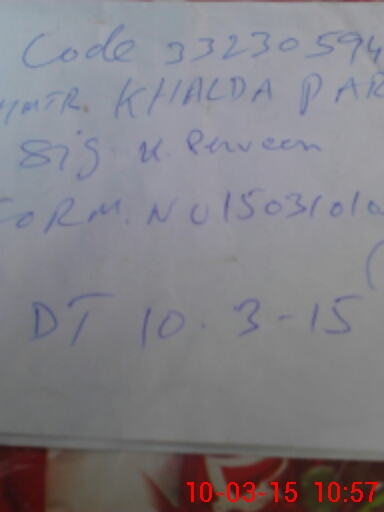 Code 33230594
HMTR. KHALDA PAR
Sig K. Perveen
FORM. NU15031010
DT 10.3-15
10-03-15 10:57